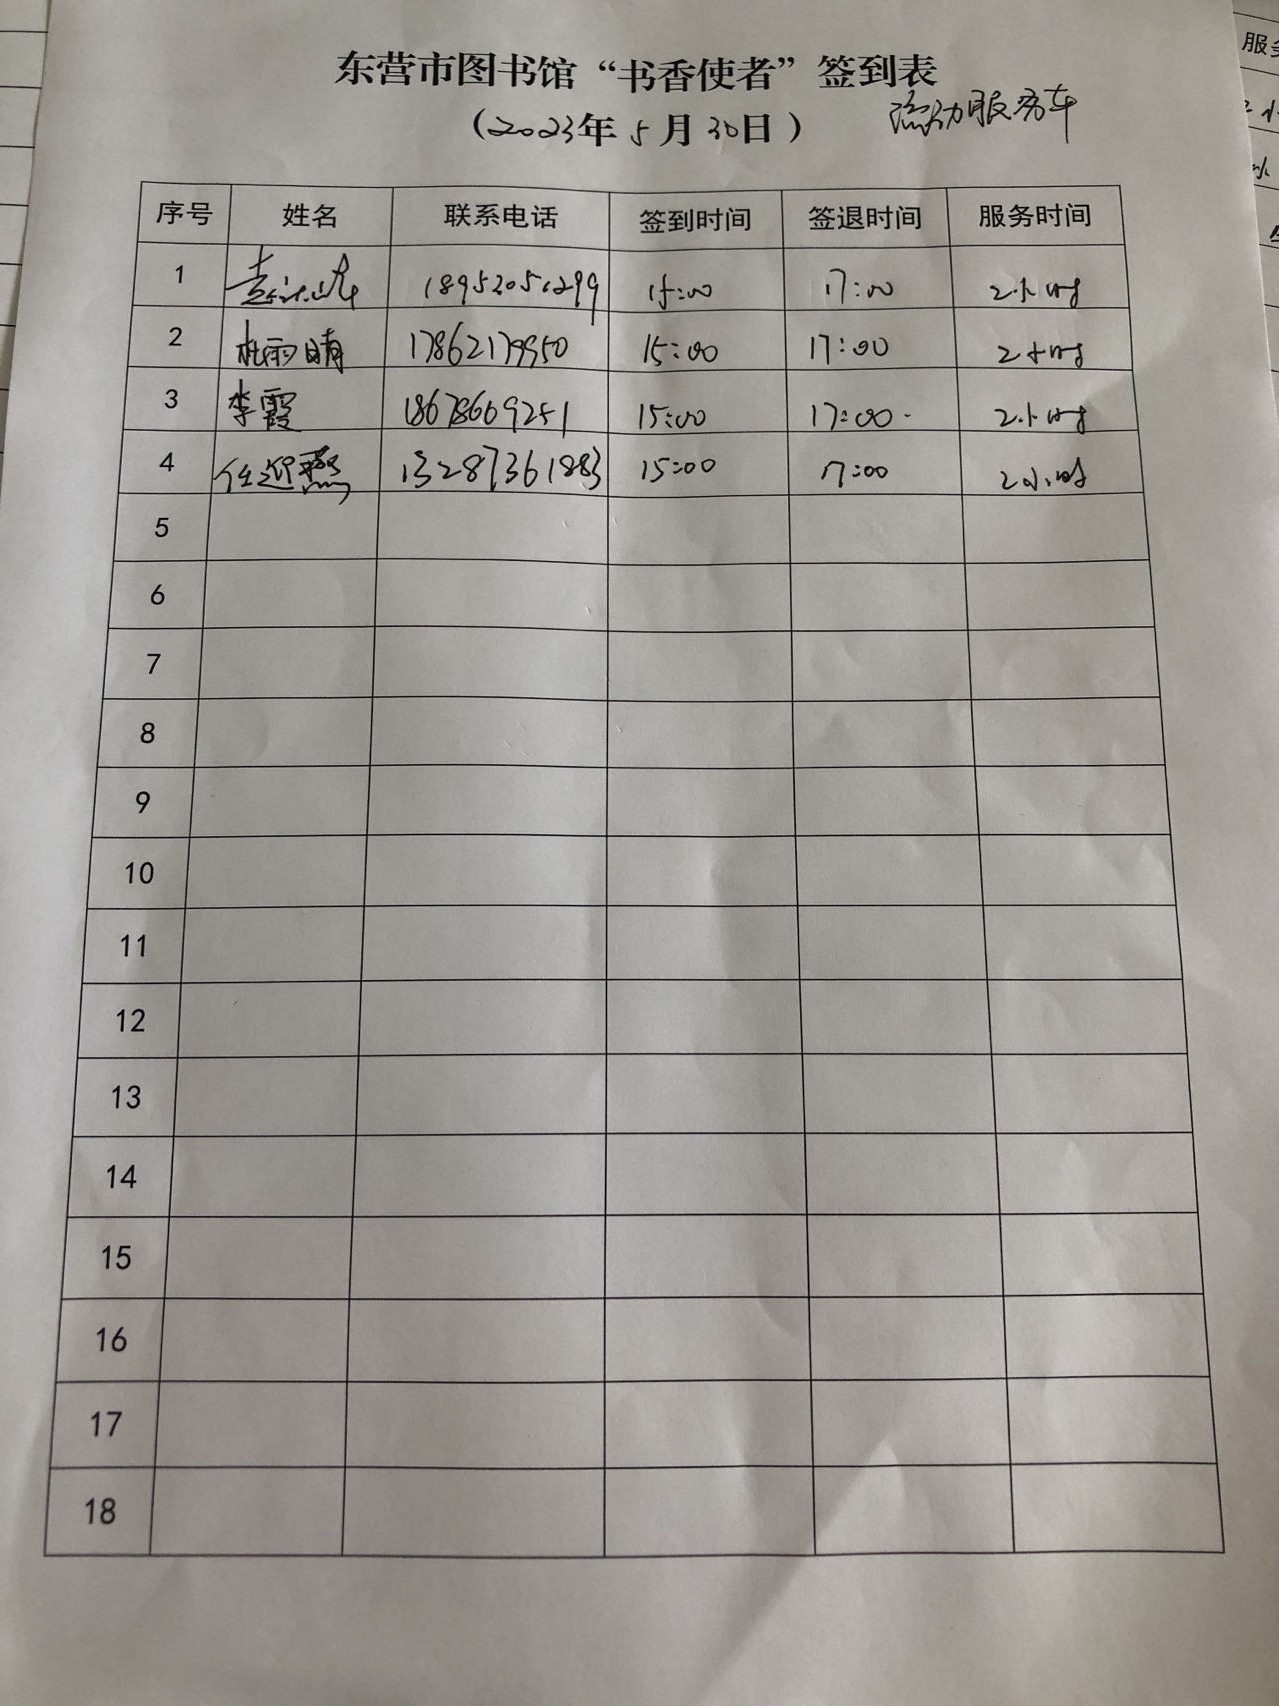 东营市图书馆“书香使者”签到表
(2023年 5月 30日) 流动服务车
序号 姓名 联系电话 签到时间 签退时间 服务时间
1 18952051299 15:00 17:00 2小时
2 杜雨晴 17862179950 15:00 17:00 2小时
3 李霞 18678669251 15:00 17:00 2小时
4 任迎燕 13287361883 15:00 17:00 2小时
5
6
7
8
9
10
11
12
13
14
15
16
17
18
服务